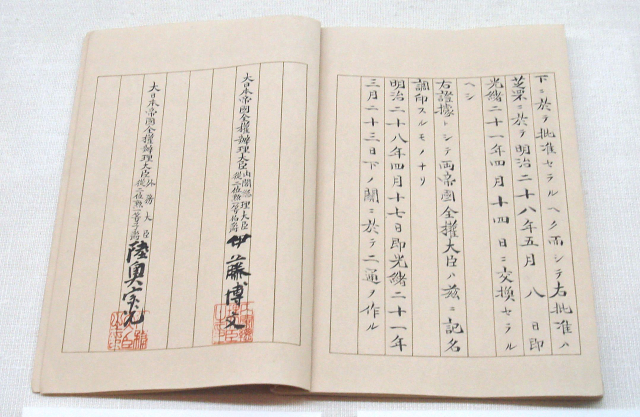 下ニ於テ批准セラルヘク而シテ右批准ハ
芝罘ニ於テ明治二十八年五月八日即
光緒二十一年四月十四日ニ交換セラル
ヘシ
右證據トシテ両帝國全權大臣ハ兹ニ記名
調印スルモノナリ
明治二十八年四月十七日即光緒二十一年
三月二十三日下ノ關ニ於テ二通ヲ作ル
大日本帝國全權辦理大臣内閣總理大臣從二位勲一等伯爵伊藤博文
大日本帝國全權辦理大臣外務大臣從二位勲一等子爵陸奥宗光